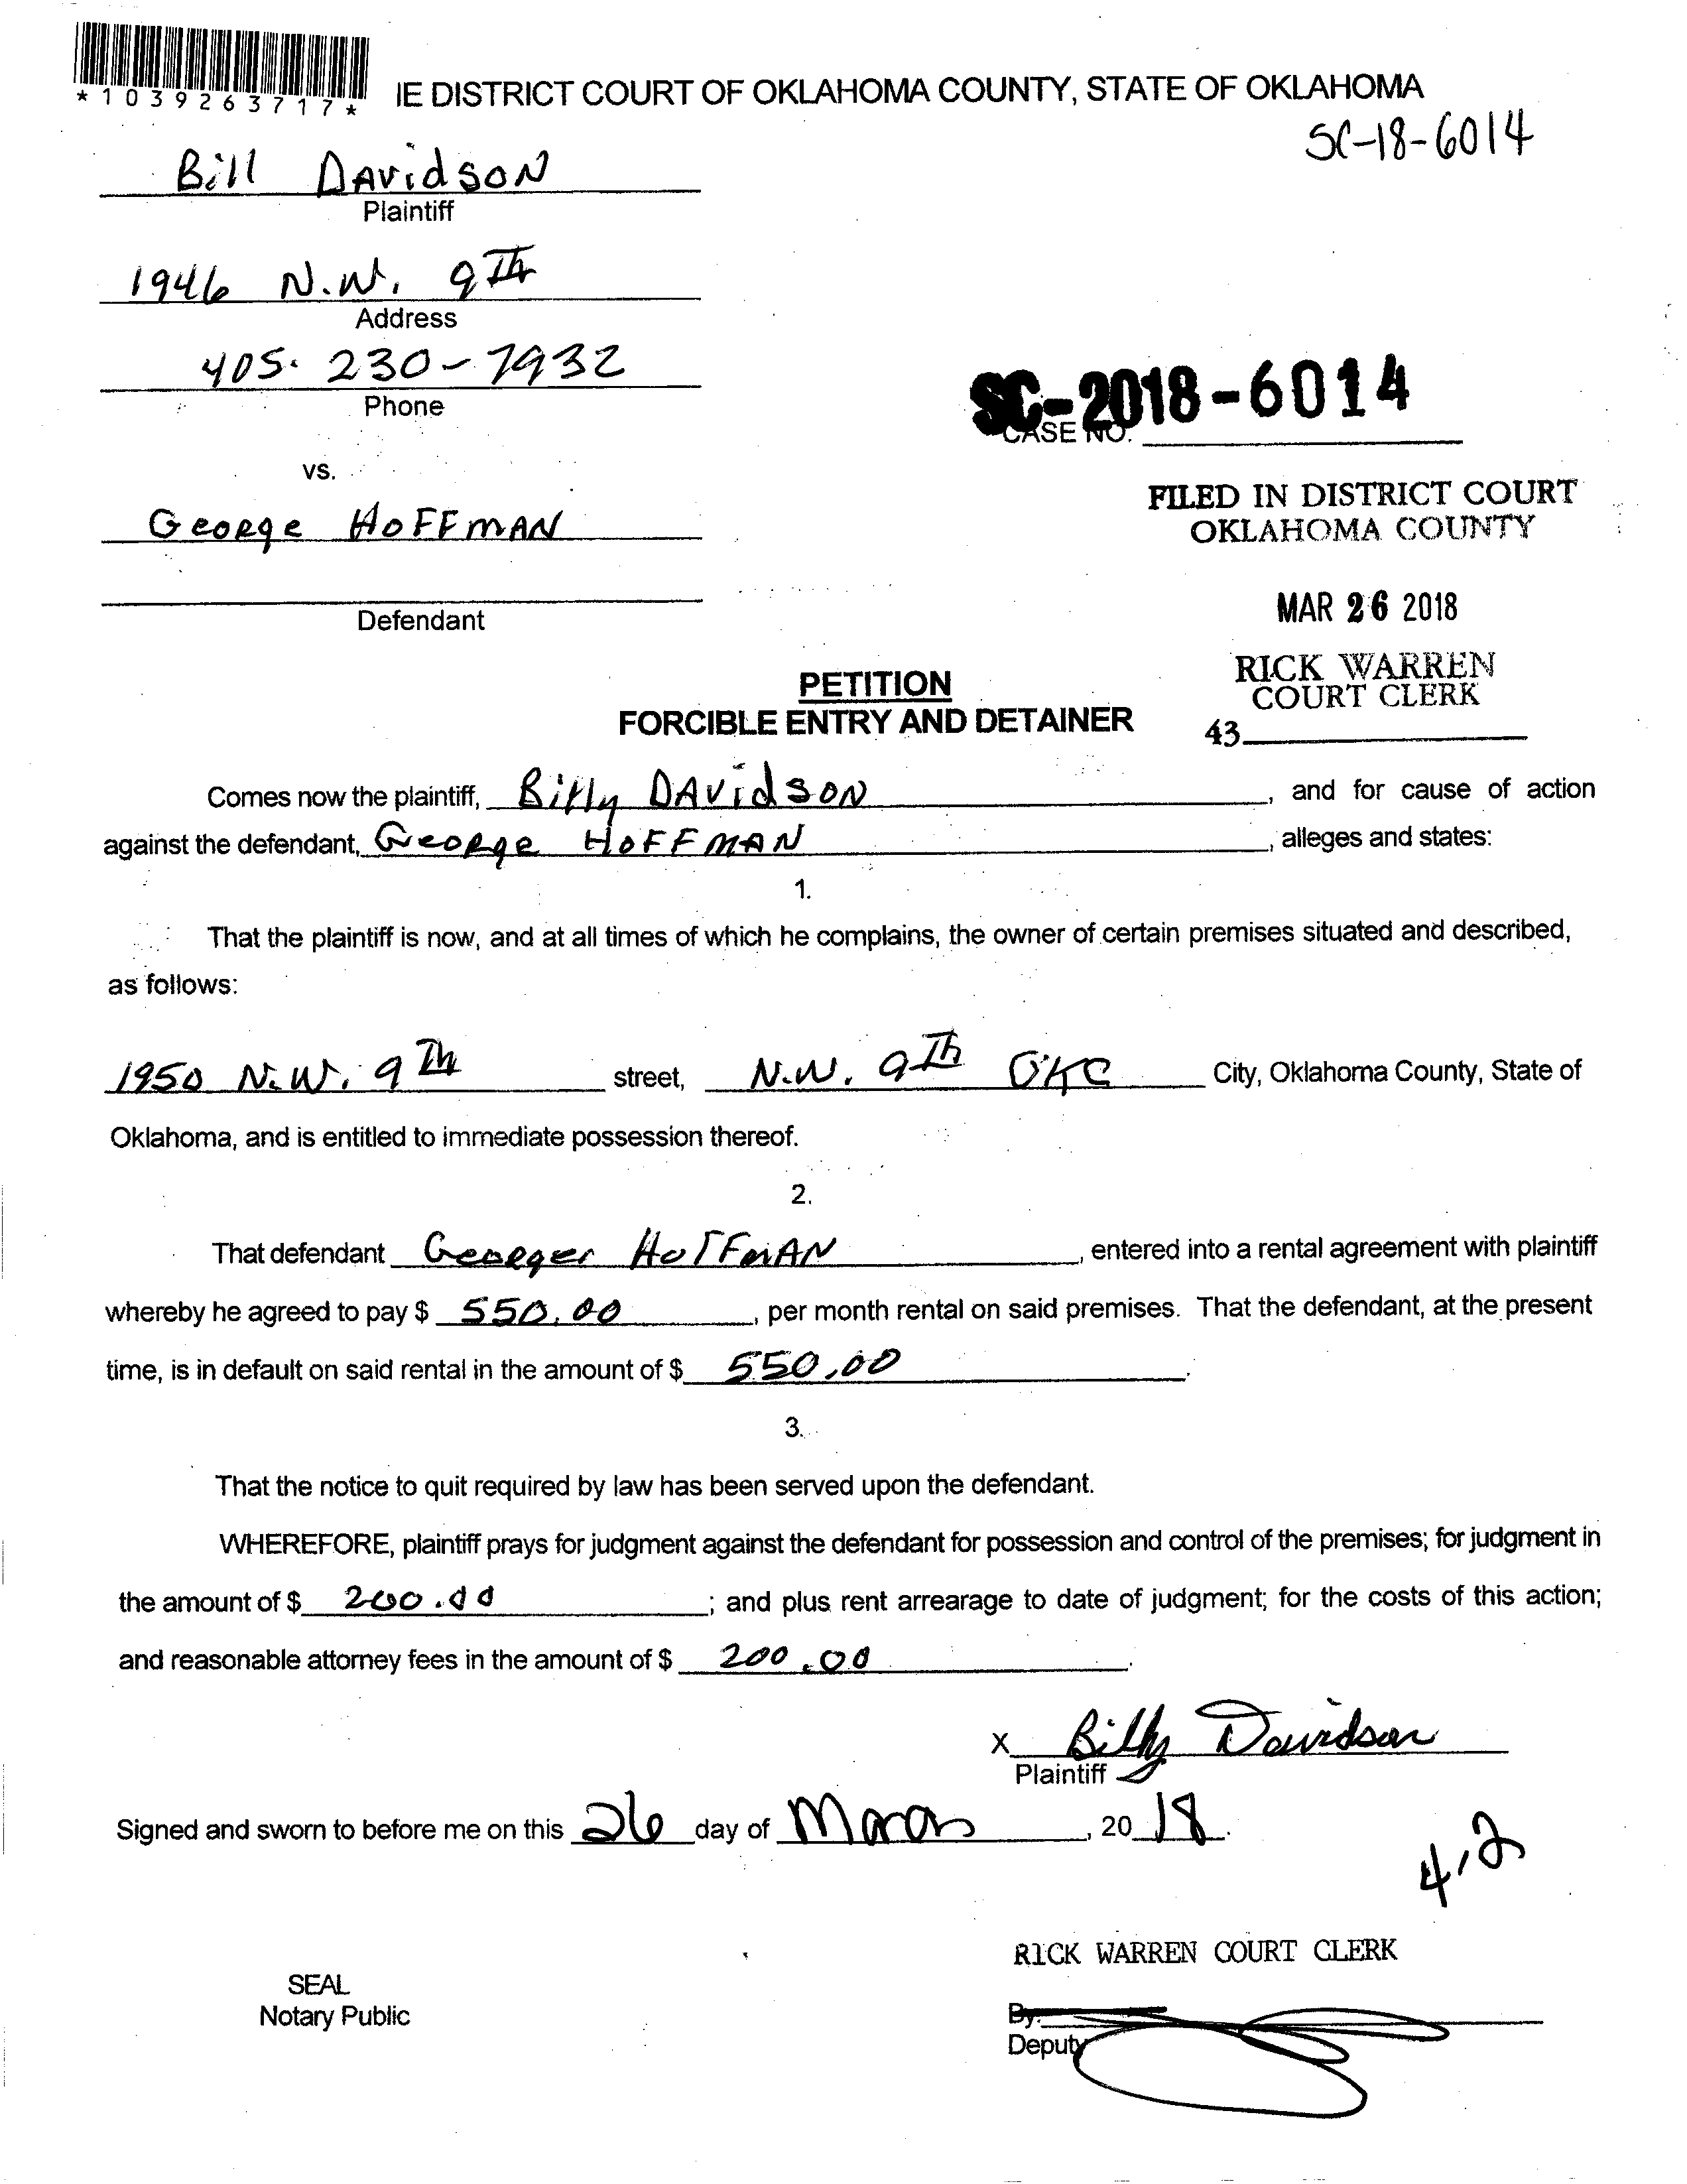 *1039263717*
IE DISTRICT COURT OF OKLAHOMA COUNTY, STATE OF OKLAHOMA
SC-18-6014
Bill DAvidsoN
Plaintiff
1946 N.W. 9Th
Address
405. 230-7932
Phone
SC-2018-6014
CASE NO.
vs.
FILED IN DISTRICT COURT
OKLAHOMA COUNTY
George HoFFmAN
Defendant
MAR 26 2018
RICK WARREN
COURT CLERK
43
PETITION
FORCIBLE ENTRY AND DETAINER
Comes now the plaintiff, Billy DAvidsoN, and for cause of action
against the defendant, George HoFFMAN, alleges and states:
1.
That the plaintiff is now, and at all times of which he complains, the owner of certain premises situated and described,
as follows:
1950 N.W. 9Th street, N.W. 9Th OKC City, Oklahoma County, State of
Oklahoma, and is entitled to immediate possession thereof.
2.
That defendant Georger HoFFmAN, entered into a rental agreement with plaintiff
whereby he agreed to pay $ 550.00, per month rental on said premises. That the defendant, at the present
time, is in default on said rental in the amount of $ 550.00.
3.
That the notice to quit required by law has been served upon the defendant.
WHEREFORE, plaintiff prays for judgment against the defendant for possession and control of the premises; for judgment in
the amount of $ 200.00; and plus rent arrearage to date of judgment; for the costs of this action;
and reasonable attorney fees in the amount of $ 200.00.
X Billy Davidson
Plaintiff
Signed and sworn to before me on this 26 day of March, 2018.
4.2
RICK WARREN COURT CLERK
SEAL
Notary Public
By:
Deputy